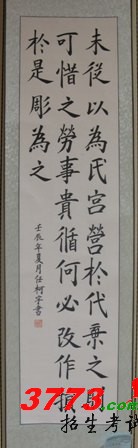 未從以為氏宮營於代棄之則
可惜之勞事貴循何必改作損
於是彫為之
壬辰年夏月任柯宇書
3773.
招生考试